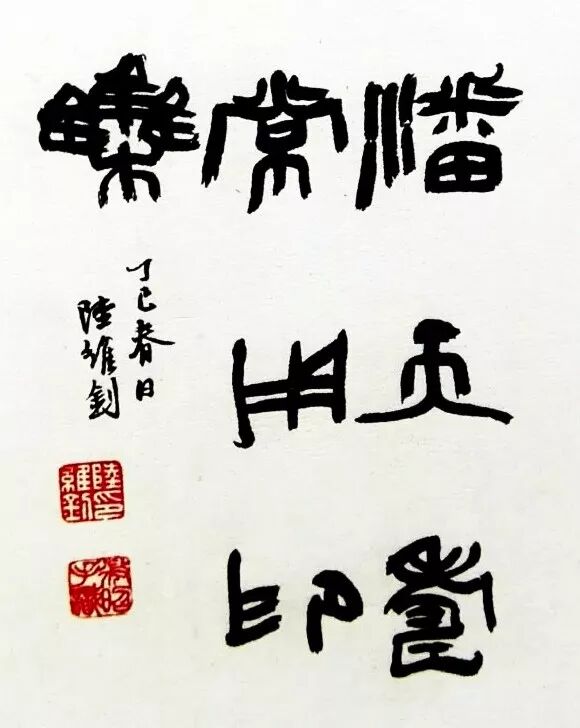 潘天壽
常用印
雧
丁巳春日
陸維釗
陸印維釗